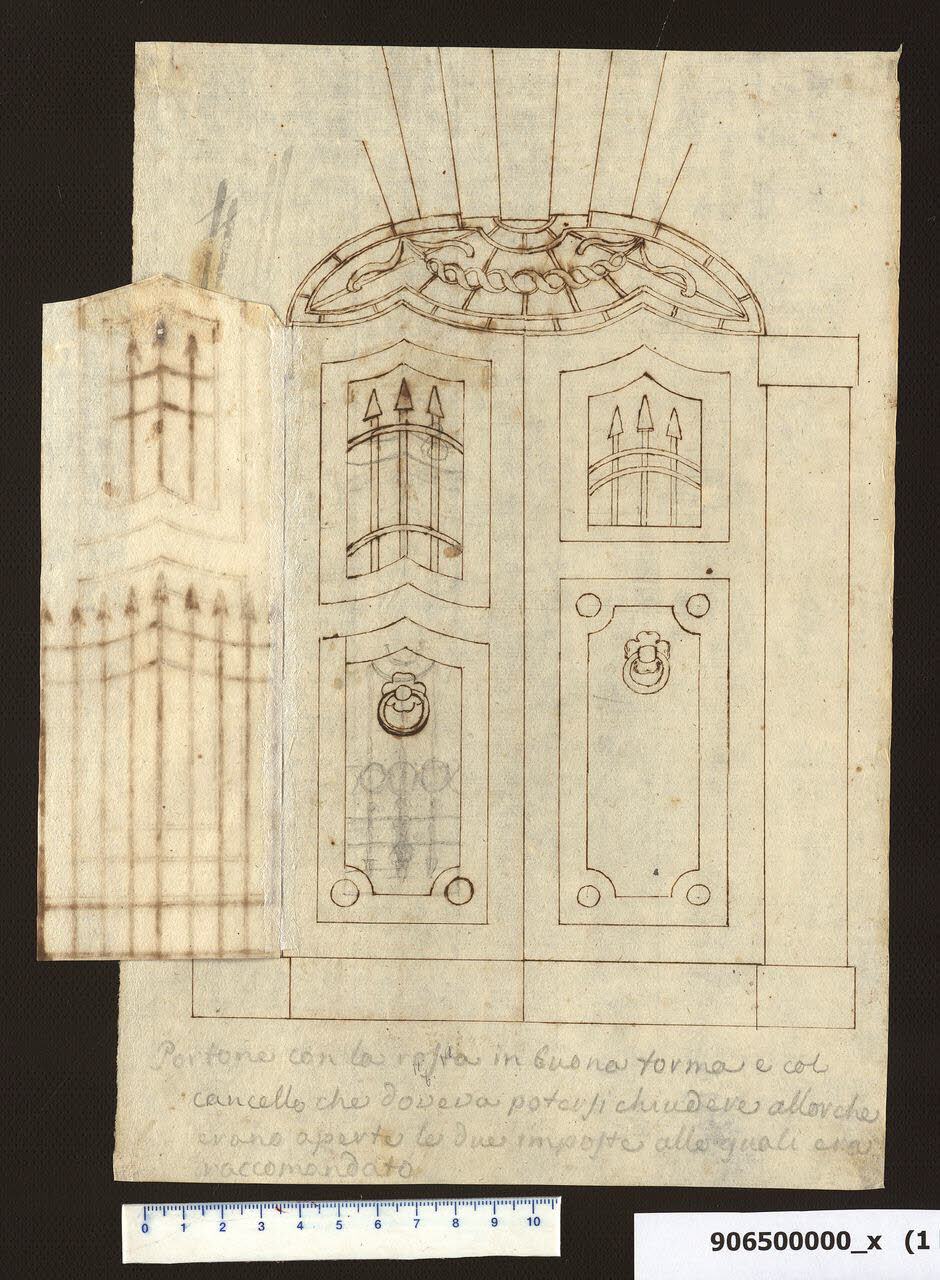 Portone con la rosta in buona forma e col
cancello che doveva potersi chiudere allorche
erano aperte le due imposte alle quali era
raccomandato
0 1 2 3 4 5 6 7 8 9 10
906500000_x (1